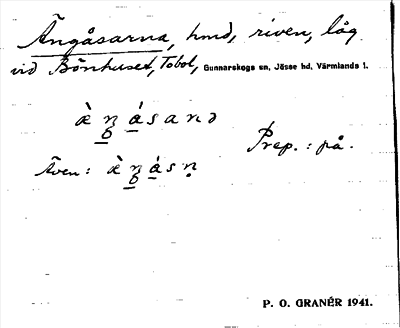 Ängåsarna, hmd, riven, låg
vid Bönhuset, Tobol, Gunnarskogs sn, Jösse hd, Värmlands l.
Prep.: på.
Även:
P. O. GRANÉR 1941.